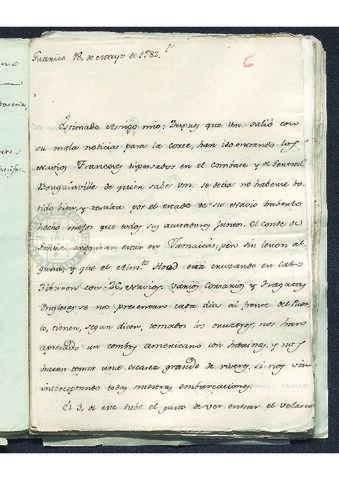 Guarico 18, de mayo de 1782.
6
Estimado Amigo mio: Despues que vm. salio con
su mala noticia para la corte, han ido entrando los
Navios Franceses dispersados en el combate y el General
Bouguinville de quien sabe vm. se decia no haberse ba-
tido bien, y resulta por el estado de su Navio haberlo
hecho mejor que todos sus acusadores juntos. El conde de
Grasse aseguran estar en Jamaica, pero sin lesion al-
guna, y que el Almte. Hood está cruzando en Cabo
Tiburon con Navios. Varios Corsarios y Fragatas
Inglesas se nos presentan cada dia al frente del Puer-
to, tienen, segun dicen, tomados los cruzeros nos han
apresado un comboy americano con harinas, y nos
hacen temer una escasez grande de viveres, si nos van
interceptando todas nuestras embarcaciones.
El 3, de este tube el gusto de ver entrar el Velasco